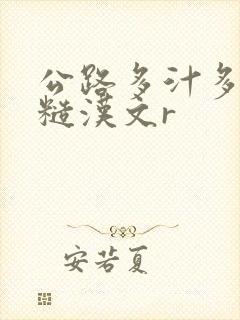 公路多汁多
糙漢文r
安若夏